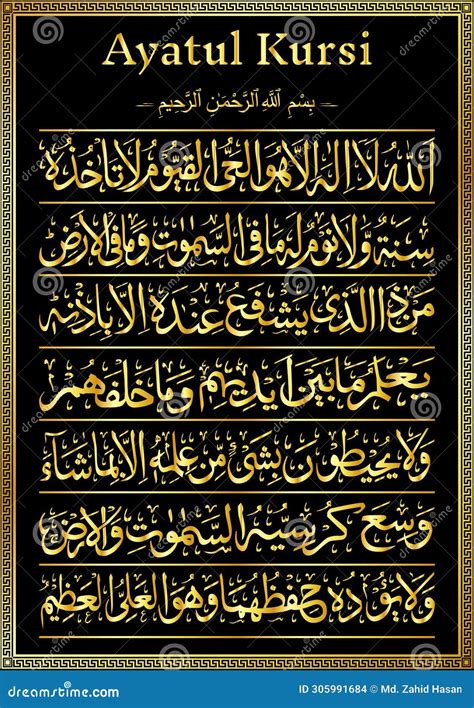 Ayatul Kursi
بِسْمِ اللَّهِ الرَّحْمَٰنِ الرَّحِيمِ
اَللّٰهُ لَاۤ اِلٰهَ اِلَّا هُوَ الْحَیُّ الْقَیُّوْمُ لَا تَاْخُذُهٗ
سِنَةٌ وَّلَا نَوْمٌ لَهٗ مَا فِی السَّمٰوٰتِ وَمَا فِی الْاَرْضِ
مَنْ ذَا الَّذِیْ یَشْفَعُ عِنْدَهٗۤ اِلَّا بِاِذْنِهٖ
یَعْلَمُ مَا بَیْنَ اَیْدِیْهِمْ وَمَا خَلْفَهُمْ
وَلَا یُحِیْطُوْنَ بِشَیْءٍ مِّنْ عِلْمِهٖۤ اِلَّا بِمَا شَآءَ
وَسِعَ كُرْسِیُّهُ السَّمٰوٰتِ وَالْاَرْضَ
وَلَا یَـُٔوْدُهٗ حِفْظُهُمَا وَهُوَ الْعَلِیُّ الْعَظِیْمُ
dreamstime.com
ID 305991684 © Md. Zahid Hasan